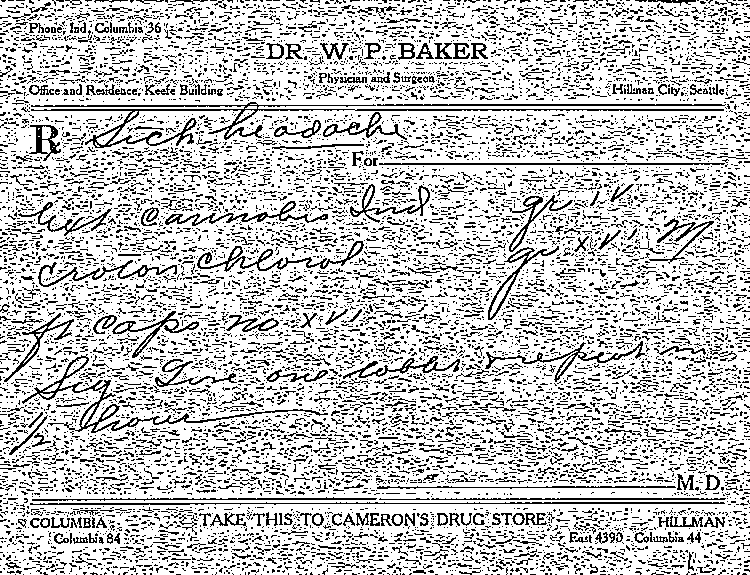 Phone, Ind. Columbia 36
DR. W. P. BAKER
Physician and Surgeon
Office and Residence, Keefe Building
Hillman City, Seattle
℞ Sick headache
For
Ext cannabis Ind gr IV
Croton Chlorol gr XVI M
ft caps no XVI
Sig Give one repeat in
½ hour
M. D.
COLUMBIA TAKE THIS TO CAMERON'S DRUG STORE HILLMAN
Columbia 84 East 4390 - Columbia 44